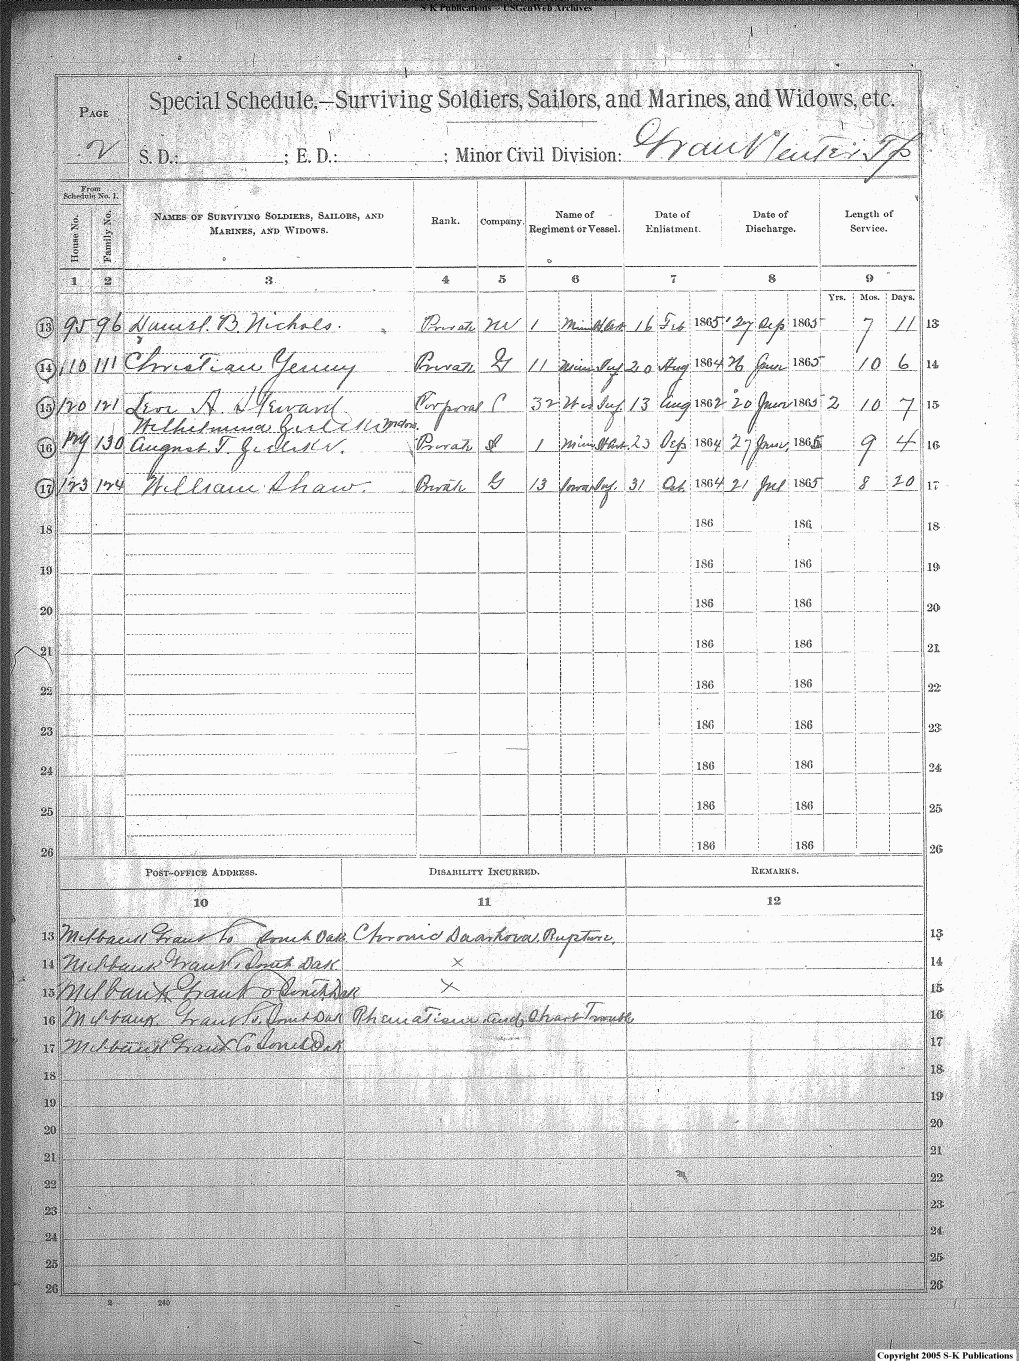 S-K Publications - USGenWeb Archives
Special Schedule.—Surviving Soldiers, Sailors, and Marines, and Widows, etc.
PAGE
2
S. D.: ; E. D.: ; Minor Civil Division: Grant Center Tp
From Schedule No. 1.
House No. Family No. NAMES OF SURVIVING SOLDIERS, SAILORS, AND MARINES, AND WIDOWS. Rank. Company. Name of Regiment or Vessel. Date of Enlistment. Date of Discharge. Length of Service.
1 2 3 4 5 6 7 8 9
Yrs. Mos. Days.
13 95 96 Daniel. B. Nichols. Private 1 Minn 16 Feb 1865 27 Sep 1865 7 11 13
14 110 111 Christian Yenny Private G 11 Minn Inf 20 Aug 1864 26 June 1865 10 6 14
15 120 121 Levi A. Steward Corporal C 32 Wis Inf. 13 Aug 1862 20 June 1865 2 10 7 15
Wilhelmina
16 129 130 August. T. Private 1 Minn 23 Sep 1864 27 June, 1865 9 4 16
17 123 124 William Shaw. Private G 13 Iowa Inf. 31 Oct. 1864 21 Jul 1865 8 20 17
18 186 186 18
19 186 186 19
20 186 186 20
21 186 186 21
22 186 186 22
23 186 186 23
24 186 186 24
25 186 186 25
26 186 186 26
POST-OFFICE ADDRESS. DISABILITY INCURRED. REMARKS.
10 11 12
13 Milbank Grant Co South Dak. Chronic Daarhoea. Rupture. 13
14 Milbank Grant, South Dak × 14
15 Milbank Grant o South Dak × 15
16 Milbank. Grant Co. South Dak Rhematism and Heart Trouble 16
17 Milbank Grant Co South Dak 17
18 18
19 19
20 20
21 21
22 22
23 23
24 24
25 25
26 26
2 240
Copyright 2005 S-K Publications